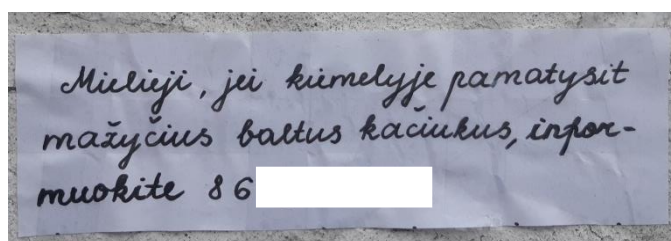 Mielieji, jei kiemelyje pamatysit
mažyčius baltus kačiukus, infor-
muokite 86